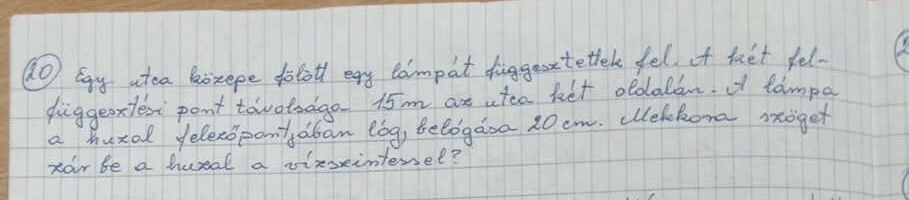 20) Egy utca közepe fölött egy lámpát függesztettek fel. A két fel-
függesztési pont távolsága 15m az utca két oldalán. A lámpa
a huzal felezőpontjában lóg, belógása 20 cm. Mekkora szöget
zár be a huzal a vízszintessel?